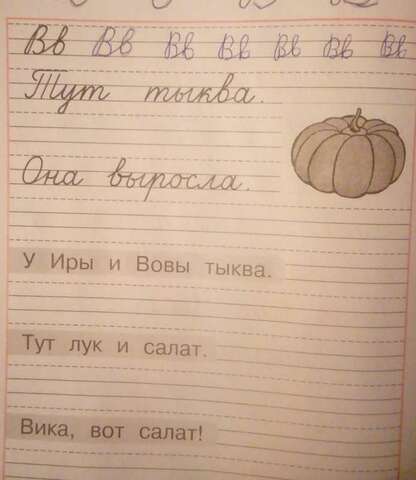 Вв Вв Вв Вв Вв Вв Вв
Тут тыква.
Она выросла.
У Иры и Вовы тыква.
Тут лук и салат.
Вика, вот салат!